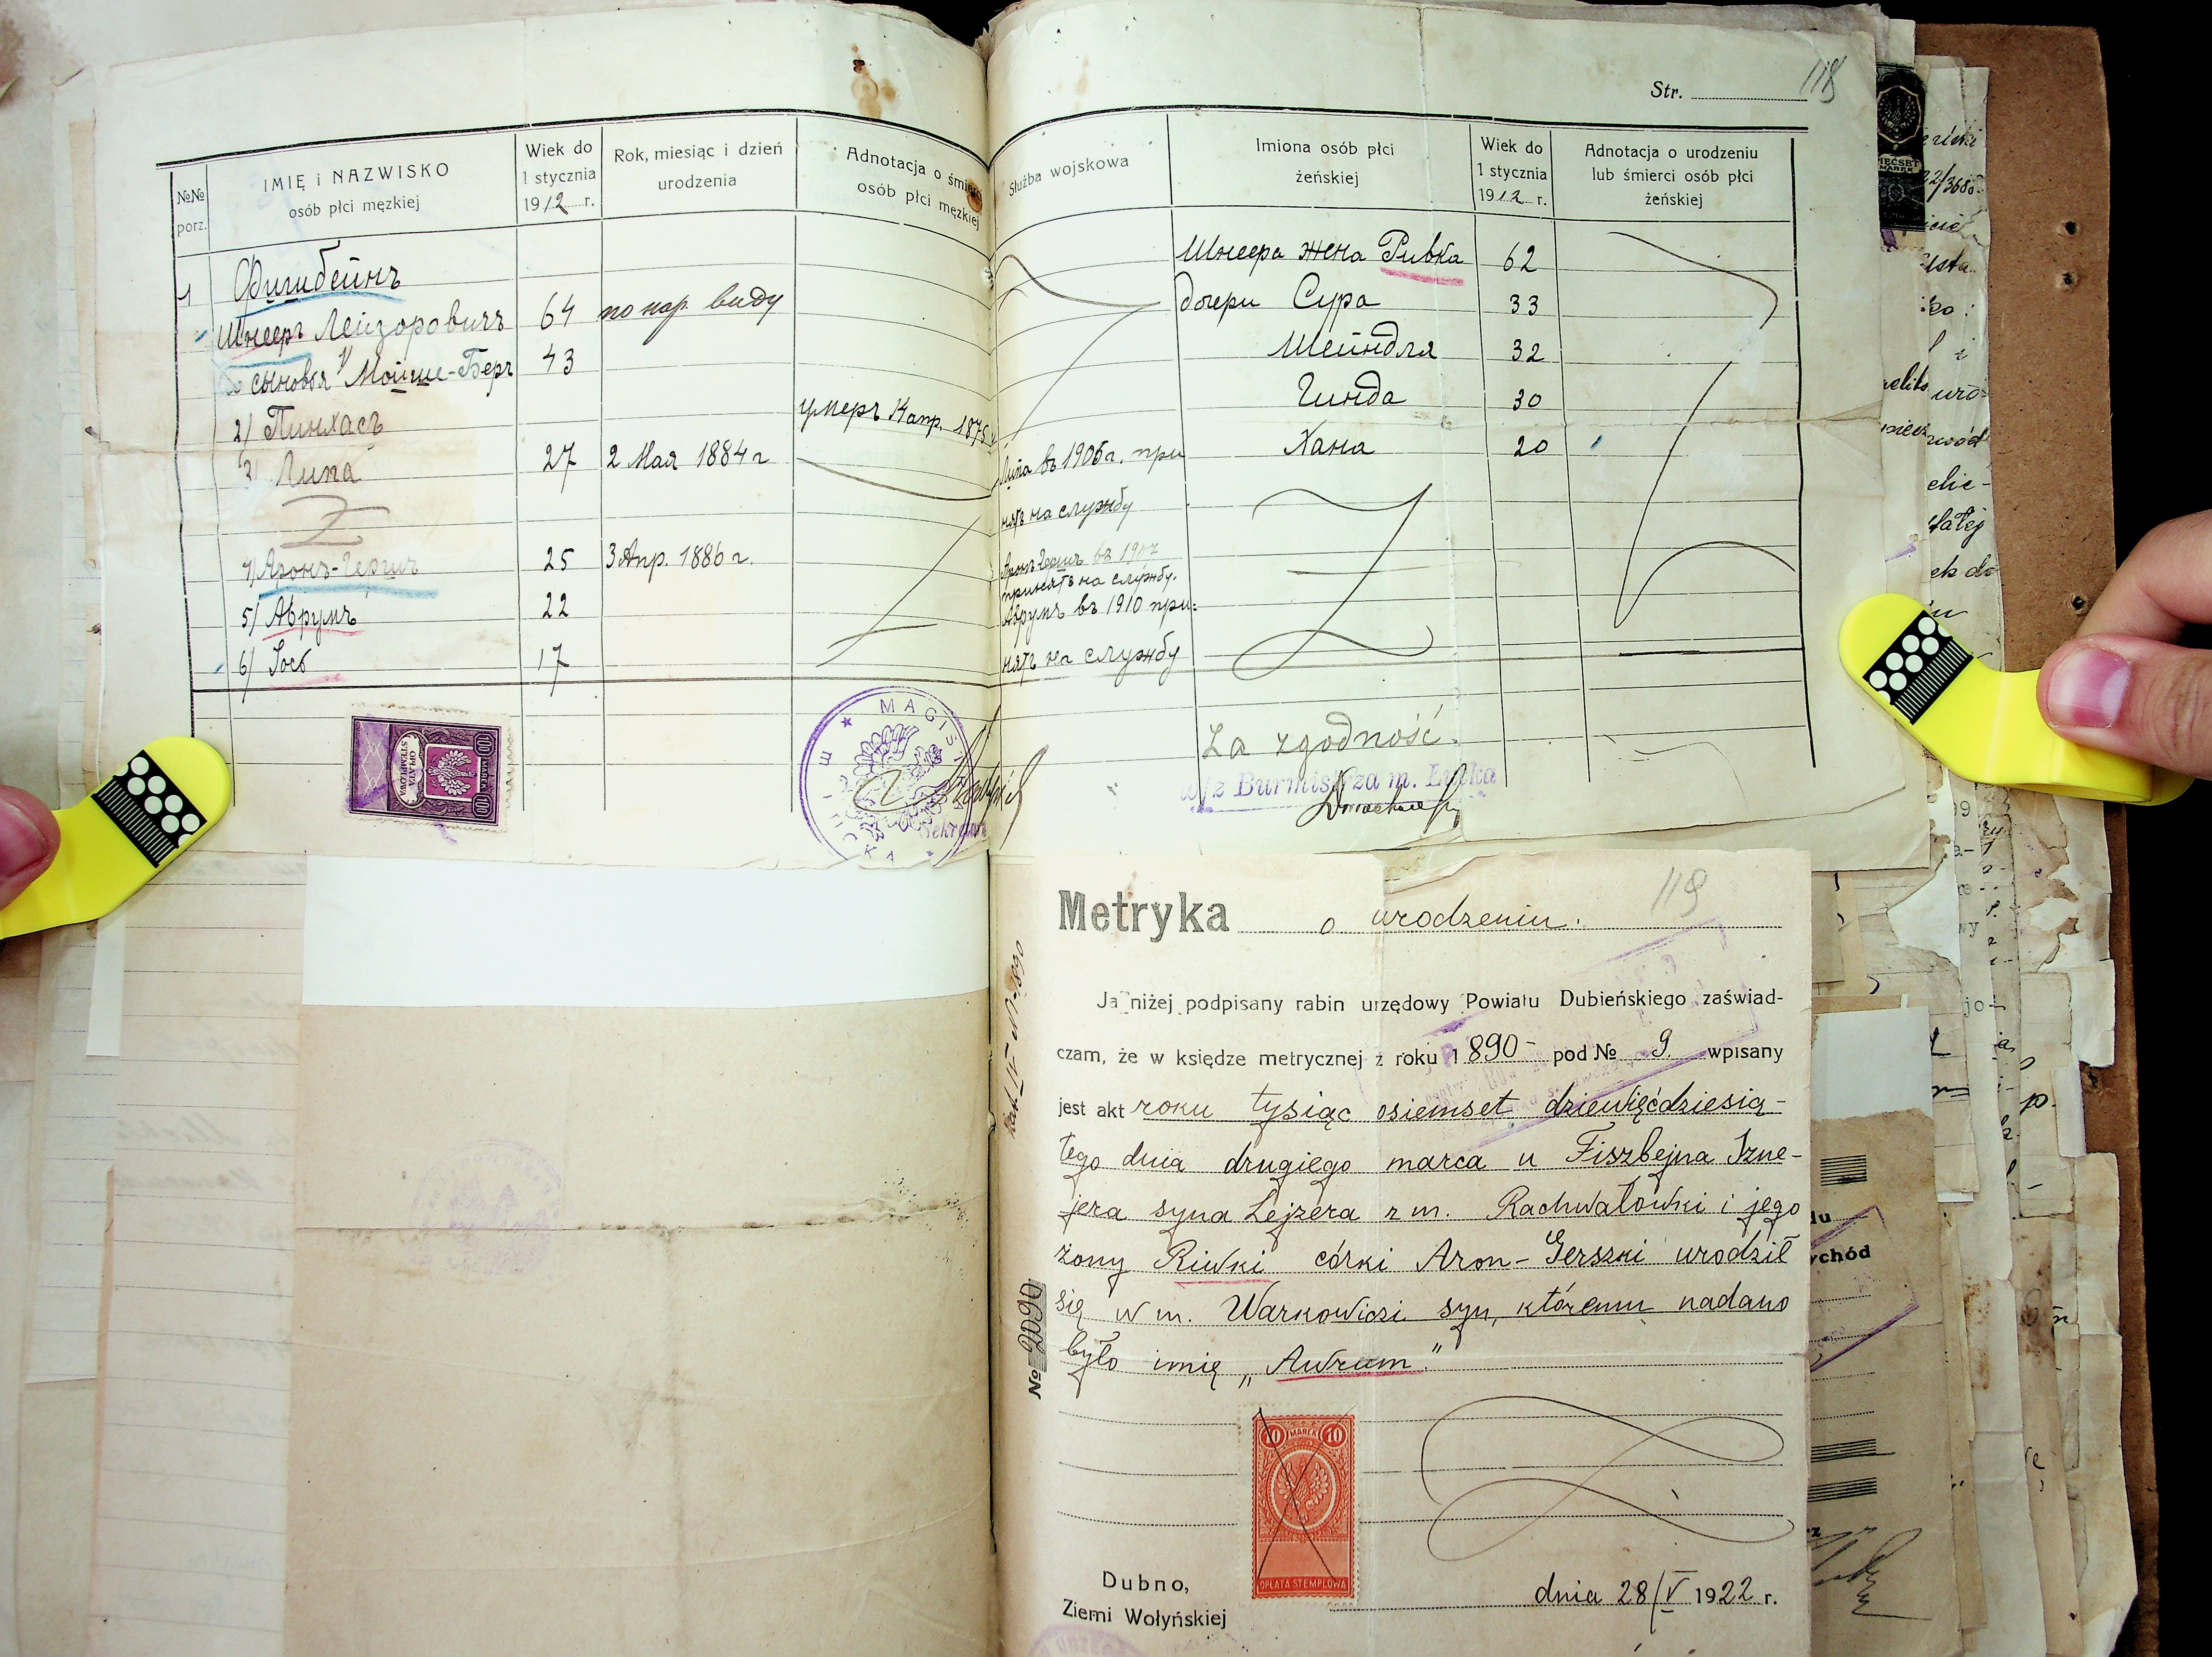 118
Str.
№№ porz.
IMIĘ i NAZWISKO
osób płci męzkiej
Wiek do
1 stycznia
1912 r.
Rok, miesiąc i dzień
urodzenia
Adnotacja o śmierci
osób płci męzkiej
Służba wojskowa
Imiona osób płci
żeńskiej
Wiek do
1 stycznia
1912 r.
Adnotacja o urodzeniu
lub śmierci osób płci
żeńskiej
1 Фишбейнъ
Шнееръ Лейзоровичъ 64 по пос. виду
сыновья 1/ Мойше-Беръ 43
2/ Пинхасъ умеръ 1875
3/ Липа 27 2 Мая 1884 г
4/ Аронъ-Гершъ 25 3 Апр. 1886 г.
5/ Аврумъ 22
6/ Іосъ 17
Липа въ 1906 г. при
нятъ на службу
Аронъ Гершъ въ 1907
принятъ на службу.
Аврумъ въ 1910 при:
нятъ на службу
Шнеера жена Ривка 62
дочери Сура 33
Шейндля 32
Гинда 30
Хана 20
100 MAREK 100
OPŁATA STEMPLOWA
MAGIST
ŁUCKA
Sekretarz
Za zgodność.
w/z Burmistrza m. Łucka
Metryka o urodzeniu.
119
Ja niżej podpisany rabin urzędowy Powiatu Dubieńskiego zaświad-
czam, że w księdze metrycznej z roku 1890- pod № 9 wpisany
jest akt roku tysiąc osiemset dziewięćdziesią-
tego dnia drugiego marca u Fiszbejna Szne-
jera syna Lejzera z m. Rachwałowki i jego
żony Riwki córki Aron-Gerszki urodził
się w m. Warkowiczi syn, któremu nadano
było imię „Awrum."
№ 2090
10 MAREK 10
OPŁATA STEMPLOWA
Dubno,
Ziemi Wołyńskiej
dnia 28/V 1922 r.